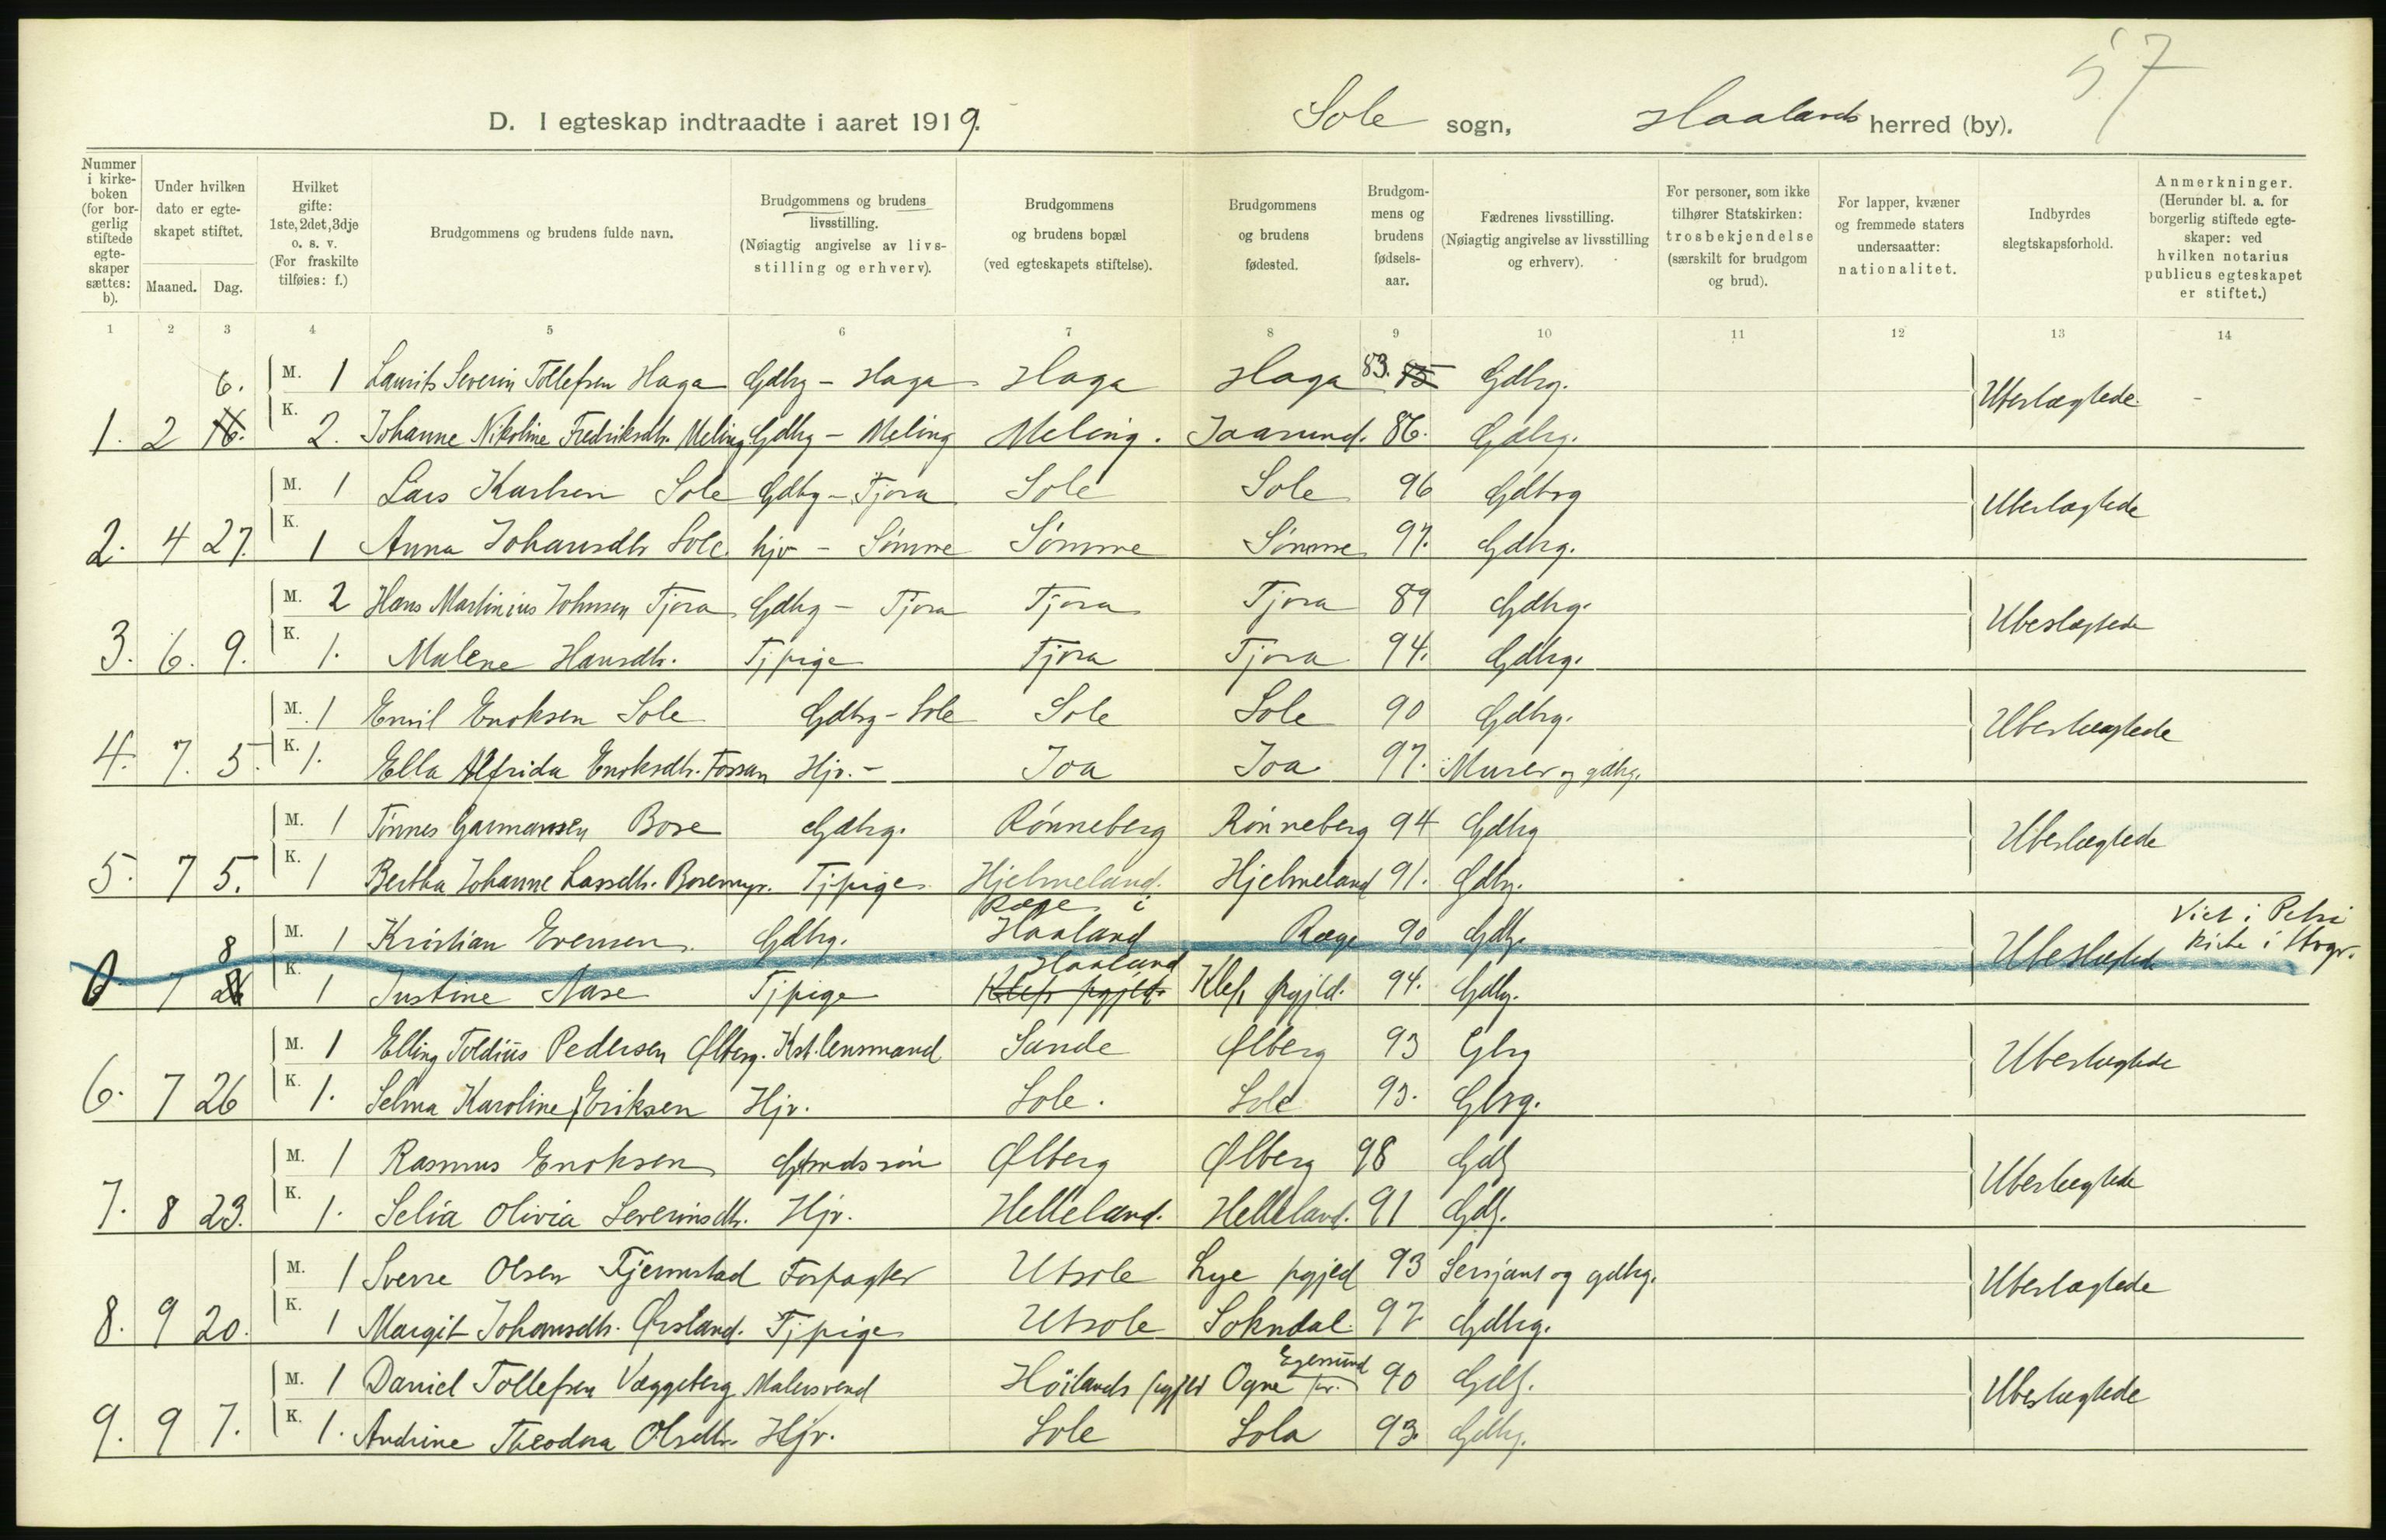 57
D. I egteskap indtraadte i aaret 1919. Sole sogn, Haalands herred (by).
Nummer i kirkeboken (for borgerlig stiftede egteskaper sættes: b). Under hvilken dato er egteskapet stiftet. Maaned. Dag. Hvilket gifte: 1ste, 2det, 3dje o. s. v. (For fraskilte tilføies: f.) Brudgommens og brudens fulde navn. Brudgommens og brudens livsstilling. (Nøiagtig angivelse av livsstilling og erhverv). Brudgommens og brudens bopæl (ved egteskapets stiftelse). Brudgommens og brudens fødested. Brudgommens og brudens fødselsaar. Fædrenes livsstilling. (Nøiagtig angivelse av livsstilling og erhverv). For personer, som ikke tilhører Statskirken: trosbekjendelse (særskilt for brudgom og brud). For lapper, kvæner og fremmede staters undersaatter: nationalitet. Indbyrdes slegtskapsforhold. Anmerkninger. (Herunder bl. a. for borgerlig stiftede egteskaper: ved hvilken notarius publicus egteskapet er stiftet.)
1 2 3 4 5 6 7 8 9 10 11 12 13 14
6. M. 1 Laurits Severin Tollefsen Haga Gdbrg - Haga Haga Haga 83. 85 Gdbrg. Ubeslægtede -
1. 2 16. K. 2. Johanne Nikoline Fredriksdtr. Meling Gdbrg - Meling Meling. Joasund. 86. Gdbrg.
M. 1 Lars Karlsen Sole Gdbrg - Tjora Sole Sole 96 Gdbrg Ubeslægtede
2. 4 27. K. 1 Anna Johansdtr Sole hjv - Sømme Sømme Sømme 97. Gdbrg.
M. 2 Hans Martinius Johnsen Tjora Gdbrg - Tjora Tjora Tjora 89 Gdbrg. Ubeslægtede
3. 6. 9. K. 1. Malene Hansdtr. Tjpige Tjora Tjora 94. Gdbrg.
M. 1 Emil Enoksen Sole Gdbrg - Sole Sole Sole 90 Gdbrg. Ubeslægtede
4. 7. 5. K. 1. Ella Alfrida Enoksdtr. Fossan Hjv. - Joa Joa 97. Murer og gdbrg.
M. 1 Tønnes Garmansen Bore Gdbrg. Rønneberg Rønneberg 94 Gdbrg Ubeslægtede
5. 7 5. K. 1 Bertha Johanne Lassedtr. Boremyr. Tjpige Hjelmeland. Hjelmeland 91. Gdbrg.
M. 1 Kristian Evensen. Gdbrg. Ræge i Haaland Ræge 90 Gdbr. Ubeslægtede Viet i Petri kirke i Stvgr.
0 7 8 26 K. 1 Justine Aase Tjpige Haaland Klep pgjeld. Klep pgjld. 94. Gdbrg.
M. 1 Elling Toldiis Pedersen Ølberg. Kst. lensmand Sande Ølberg 93 Gbrg Ubeslægtede
6. 7 26 K. 1. Selma Karoline Eriksen Hjv. Sole. Sole 93. Gbrg.
M. 1 Rasmus Enoksen Gaardssøn Ølberg Ølberg 98 Gdb Ubeslægtede
7. 8 23. K. 1. Selia Olivia Severinsdtr. Hjv. Helleland. Helleland. 91 Gdb.
M. 1 Sverre Olsen Tjemsland Forpagter Utsole Lye pgjeld 93 Sersjant og gdbrg. Ubeslægtede
8. 9 20. K. 1 Margit Johansdtr. Ørsland. Tjpige Utsole Sokndal. 97 Gdbrg.
M. 1 Daniel Tollefsen Væggeberg Malersvend Høilands pgjeld Ogne Egersund pr. 90 Gdb. Ubeslægtede
9. 9 7. K. 1. Andrine Theodora Olsdtr. Hjv. Sole Sola 93. Gdbrg.